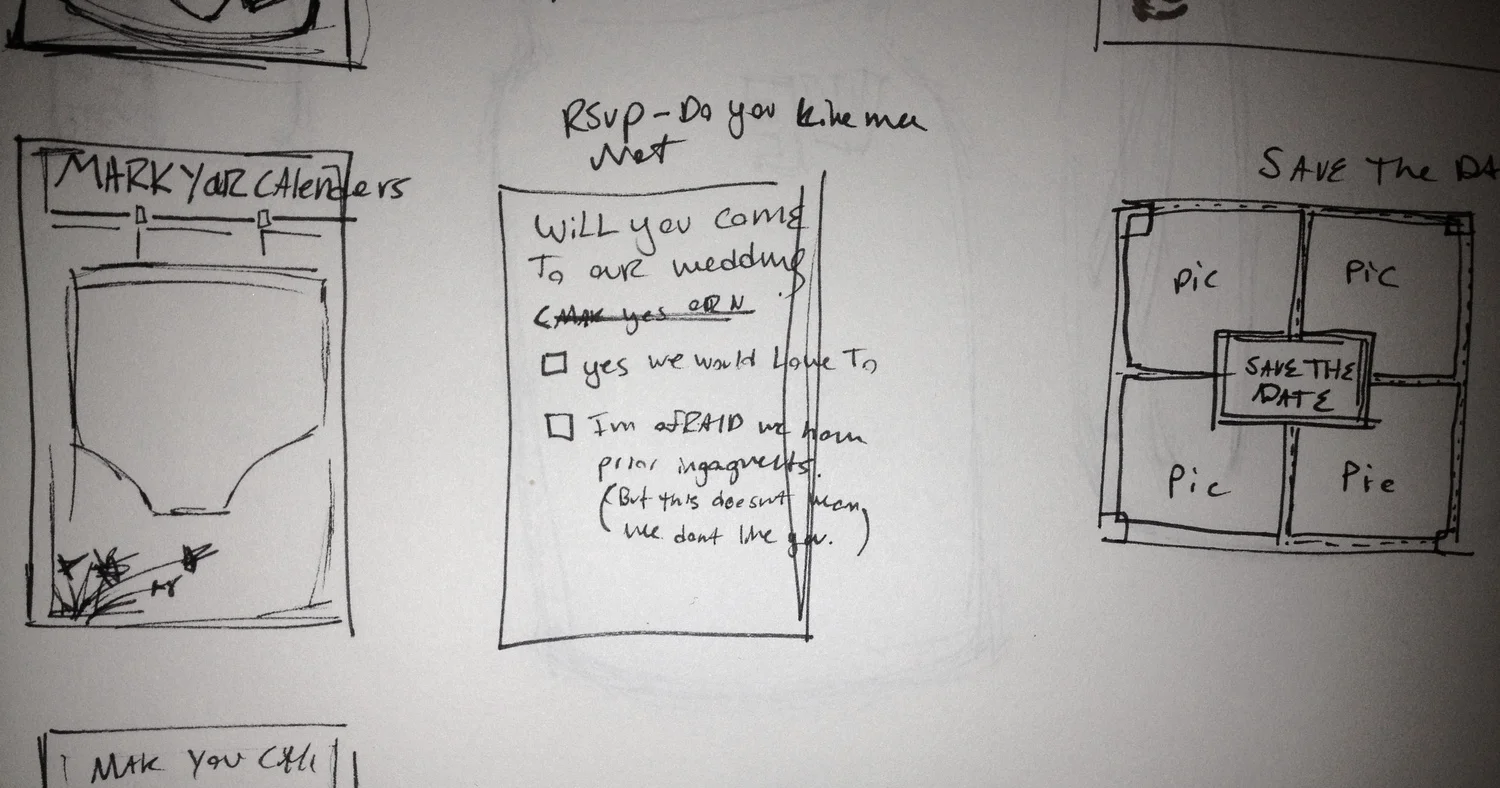 MARK YOUR CAlenders
RSVP - Do you like me
Not
Will you come
To our wedding
yes OR N
yes we would Love To
I'm afRAID we have
prior
(But this doesnt mean
we dont like you.)
SAVE The DA
pic
PIC
SAVE THE
DATE
Pic
Pic
MAK YOU CAl